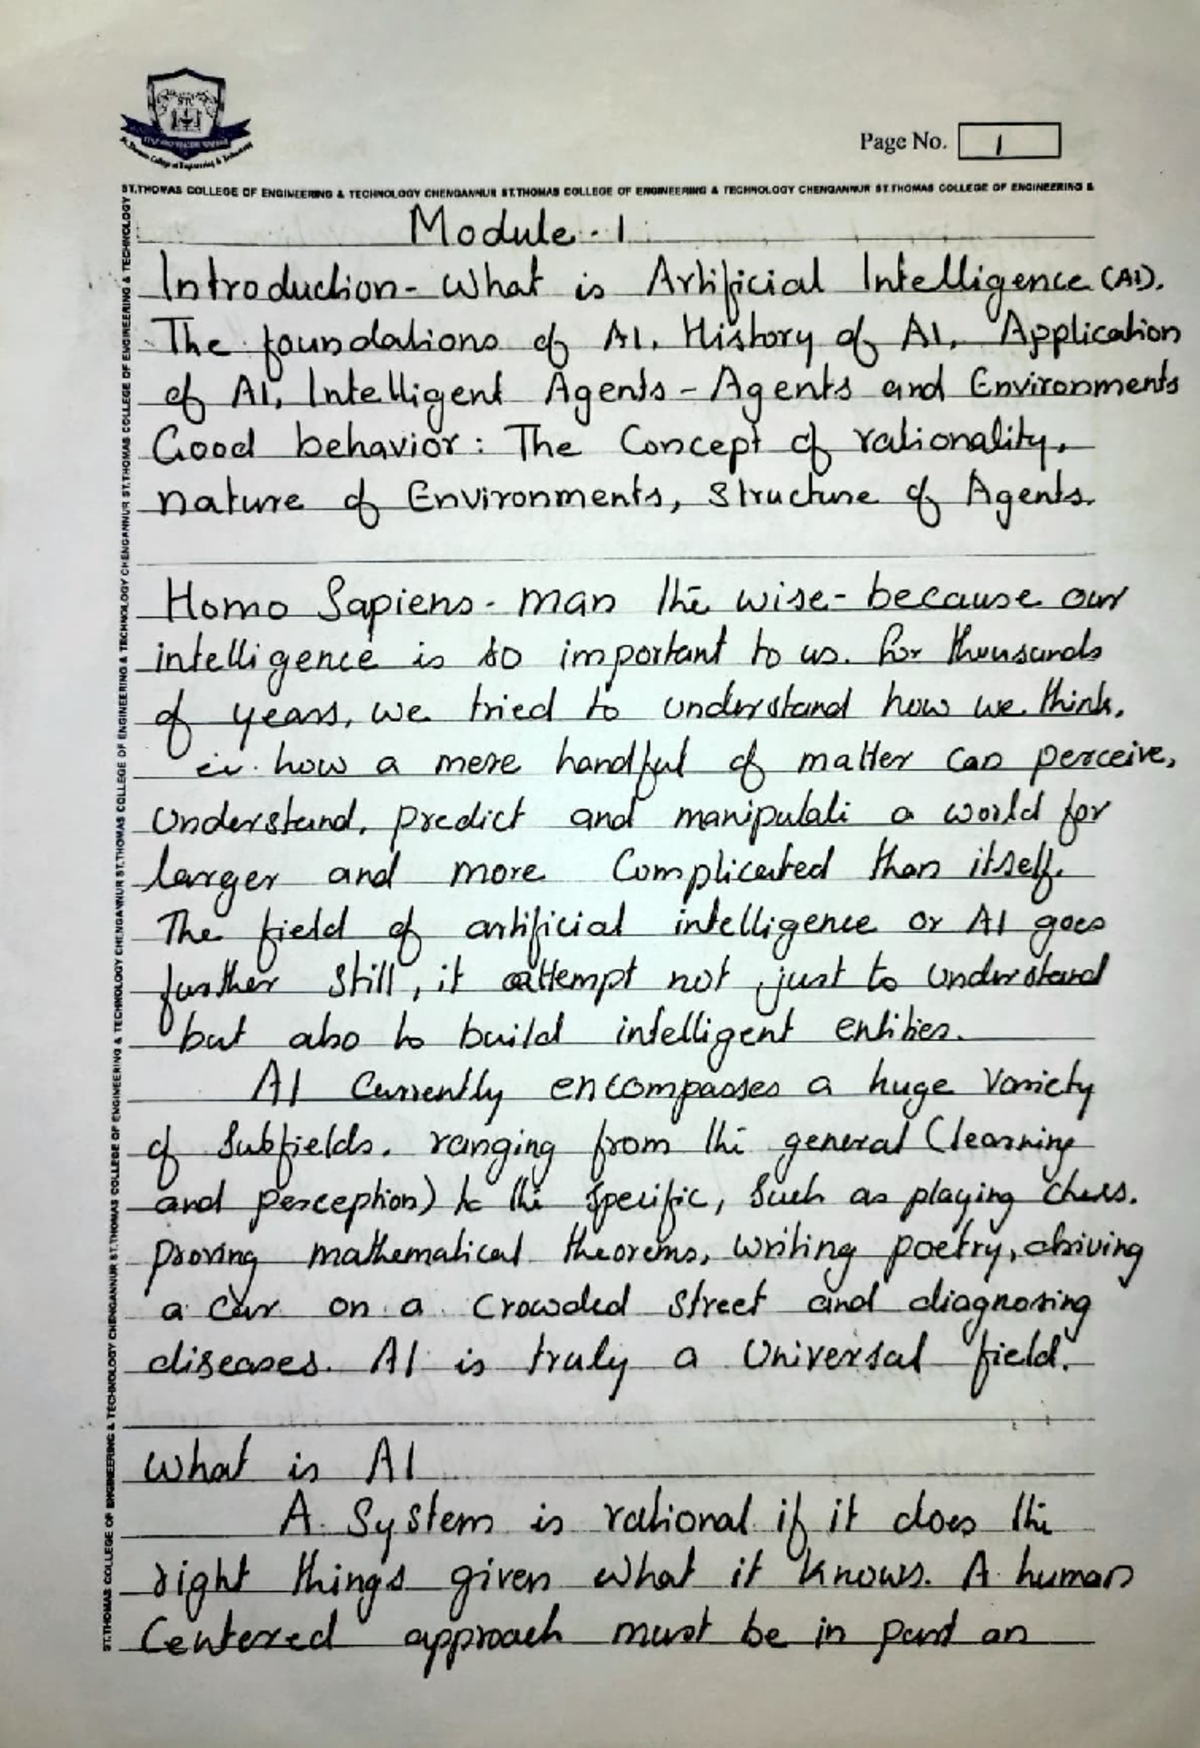 STC
St. Thomas College of Engineering & Technology
Page No. 1
ST.THOMAS COLLEGE OF ENGINEERING & TECHNOLOGY CHENGANNUR ST.THOMAS COLLEGE OF ENGINEERING & TECHNOLOGY CHENGANNUR ST.THOMAS COLLEGE OF ENGINEERING &
ST.THOMAS COLLEGE OF ENGINEERING & TECHNOLOGY CHENGANNUR ST.THOMAS COLLEGE OF ENGINEERING & TECHNOLOGY CHENGANNUR ST.THOMAS COLLEGE OF ENGINEERING & TECHNOLOGY CHENGANNUR ST.THOMAS COLLEGE OF ENGINEERING & TECHNOLOGY
Module - 1
Introduction - What is Artificial Intelligence (AI).
The foundations of AI, History of AI, Application
of AI, Intelligent Agents - Agents and Environments
Good behavior : The Concept of rationality,
nature of Environments, Structure of Agents.
Homo Sapiens - man the wise - because our
intelligence is so important to us. For thousands
of years, we tried to understand how we think.
ie. how a mere handful of matter can perceive,
Understand, predict and manipulate a world for
larger and more Complicated than itself.
The field of artificial intelligence or AI goes
further still, it attempt not just to understand
but also to build intelligent entities.
AI Currently encompasses a huge variety
of Subfields, ranging from the general (learning
and perception) to the specific, Such as playing chess.
proving mathematical theorems, writing poetry, driving
a car on a Crowded street and diagnosing
diseases. AI is truly a Universal field.
What is AI
A System is rational if it does the
right things given what it knows. A human
Centered approach must be in part an